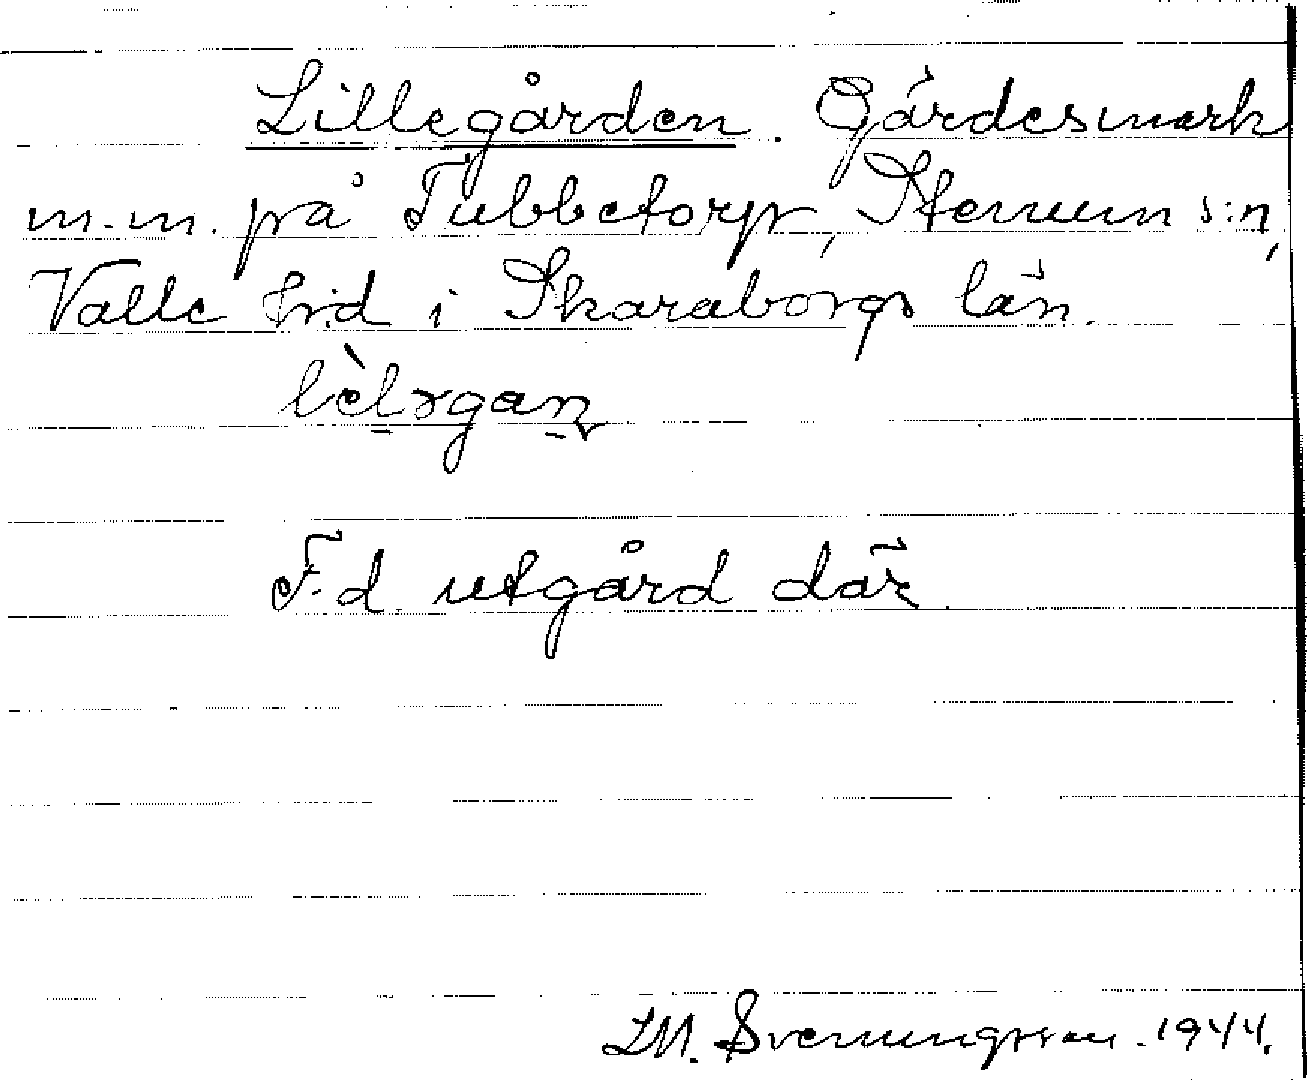 Lillegården. Gärdesmark
m.m. på Tubbetorp, Stenum s:n,
Valle hrd i Skaraborgs län.
F.d. utgård där
LM. Svenungsson. 1944.